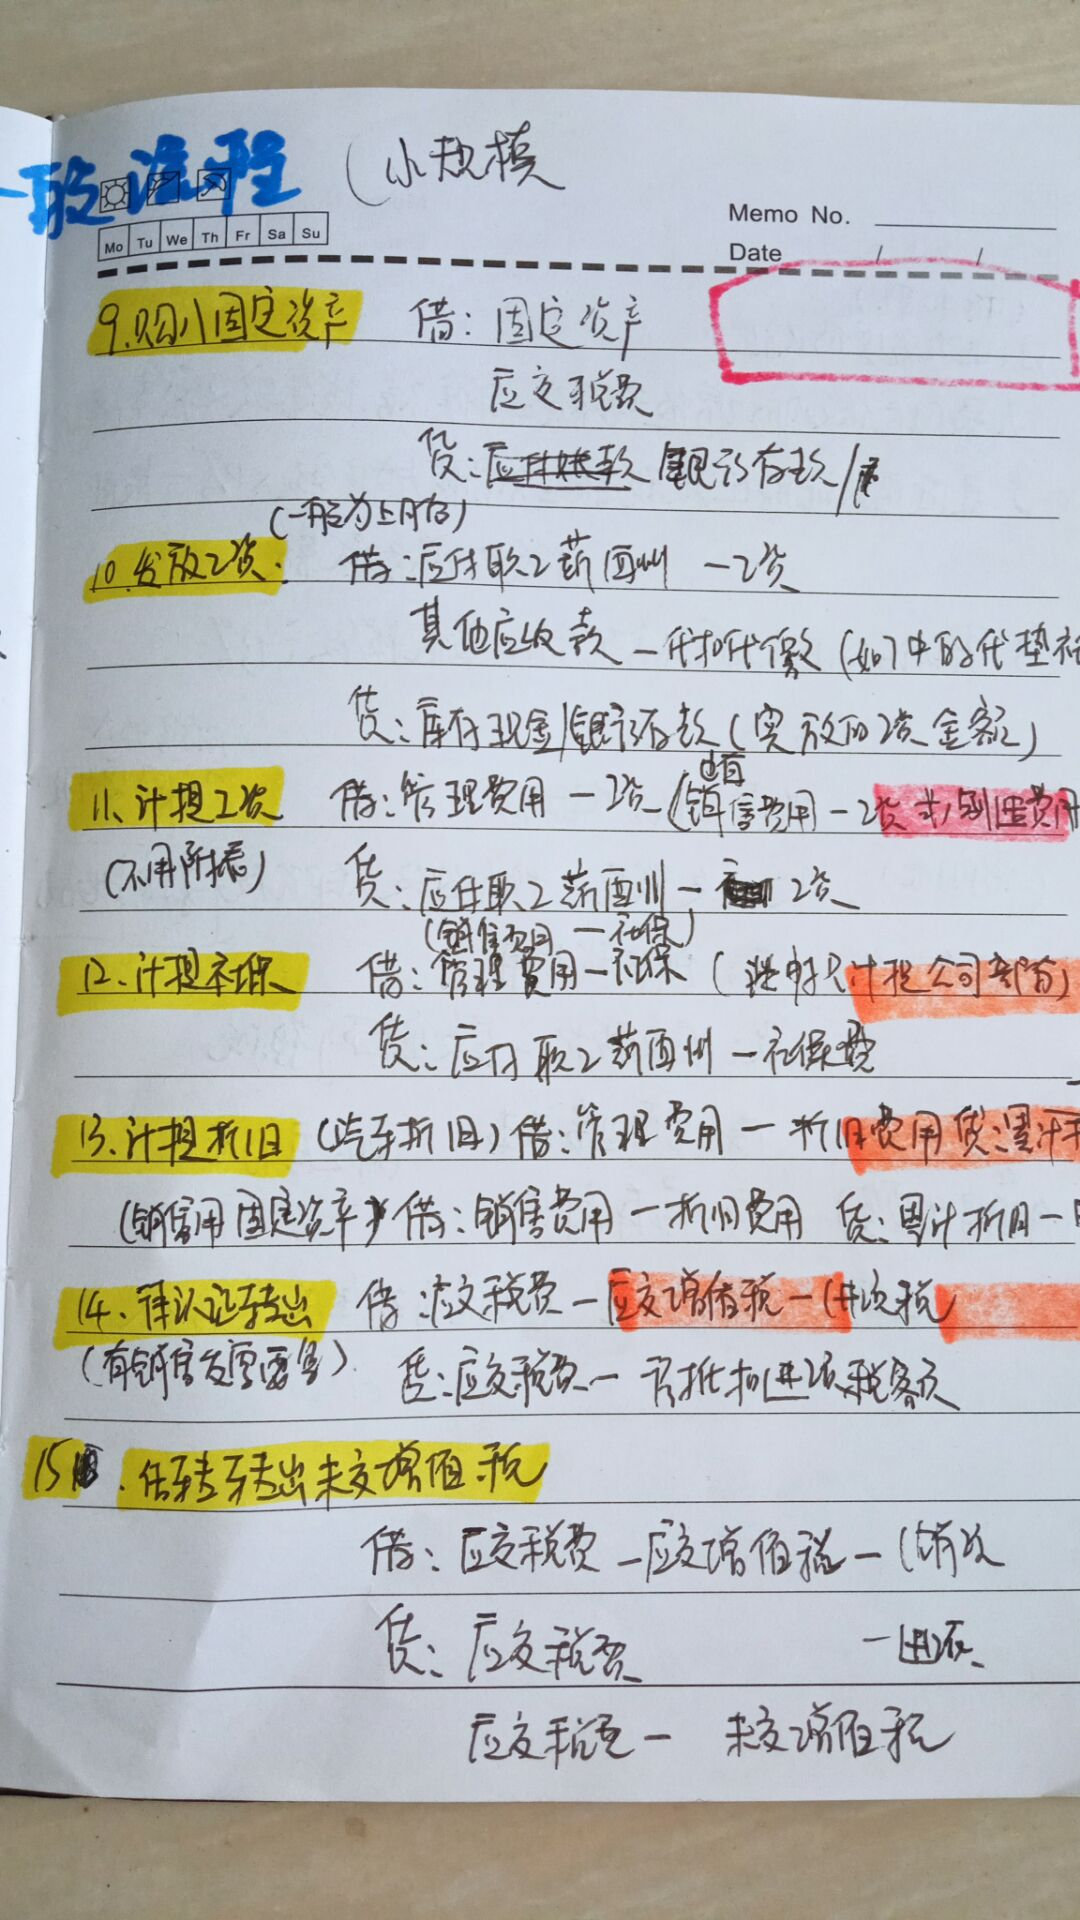 一般流程 (小规模
Mo Tu We Th Fr Sa Su
Memo No.
Date / /
9.购入固定资产 借:固定资产
应交税费
贷:应付账款 银行存款/
(一般为上月份)
10.发放工资. 借:应付职工薪酬 一工资
其他应收款 一代扣代缴(如中的代垫社
贷:库存现金/银行存款(实放的工资金额)
11、计提工资 借:管理费用 一工资 (销售费用一工资 制造费用
(不用附表) 贷:应付职工薪酬一 工资
(销售费用 一社保)
12、计提社保 借:管理费用一社保 ( 计提公司部分)
贷:应付职工薪酬 一社保费
13、计提折旧 (汽车折旧) 借:管理费用 一 折旧费用 贷:累计
(销售用固定资产) 借:销售费用 一折旧费用 贷:累计折旧一
14、待认证转出 借:应交税费一应交增值税一(进项税
(有销售发票要写) 贷:应交税费一 待抵扣进项税额
15. 结转转出未交增值税
借:应交税费 一应交增值税一 (销项
贷:应交税费 一进项
应交税费一 未交增值税